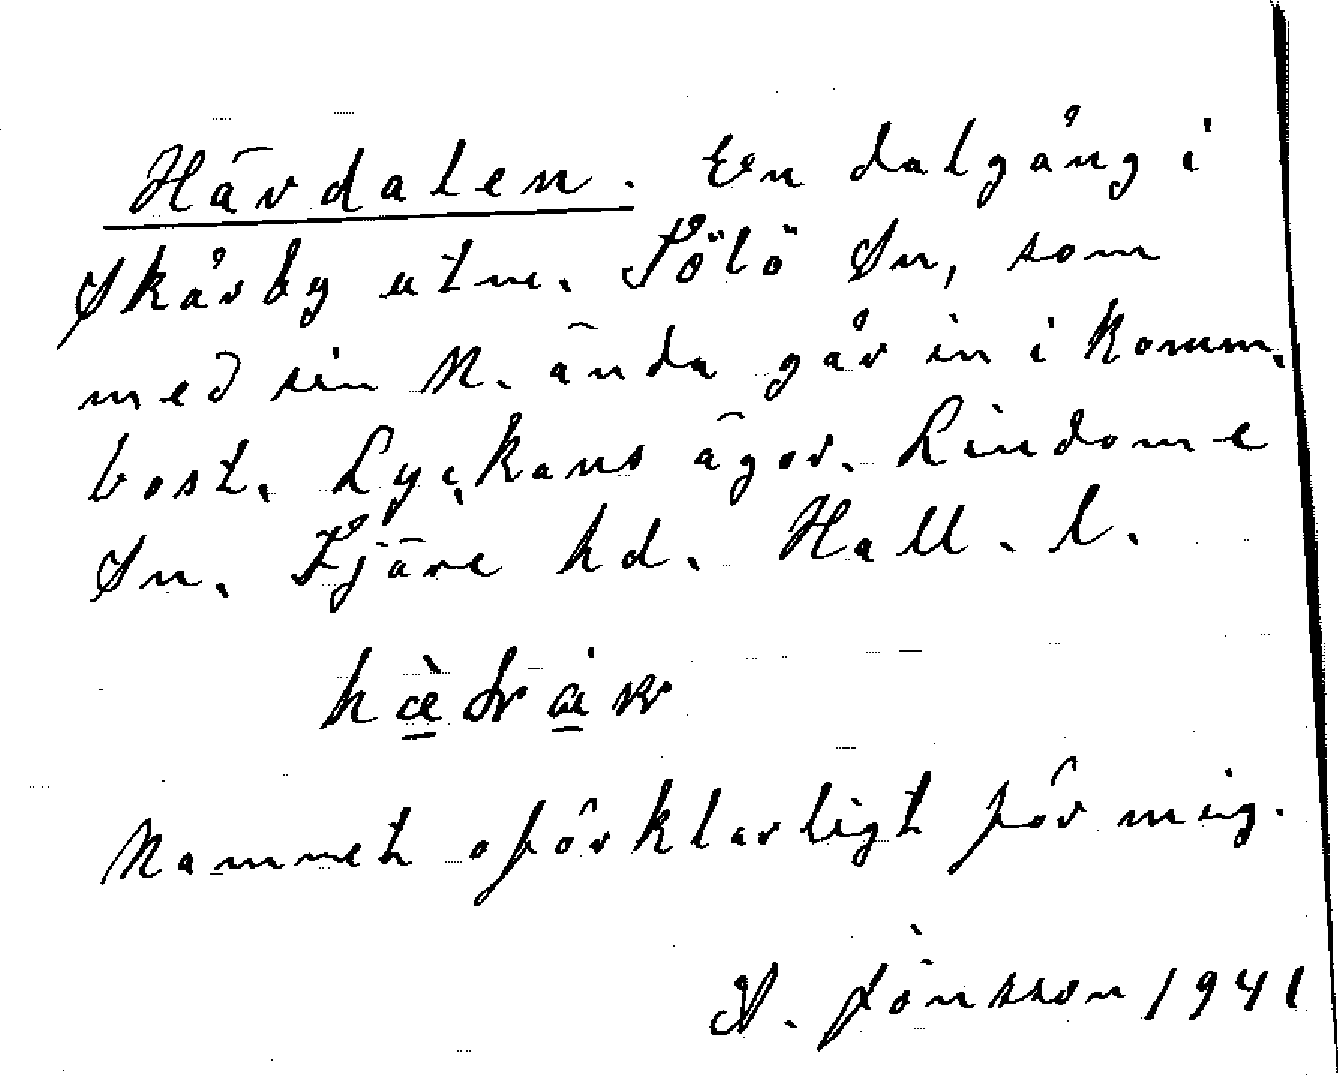 Härdalen. En dalgång i
Skårby utm. Tölö Sn, som
med sin N. ända går in i komm.
bost. Lyckans ägor. Lindome
Sn. Fjäre hd. Hall. l.
Namnet oförklarligt för mig.
A. Jönsson 1941